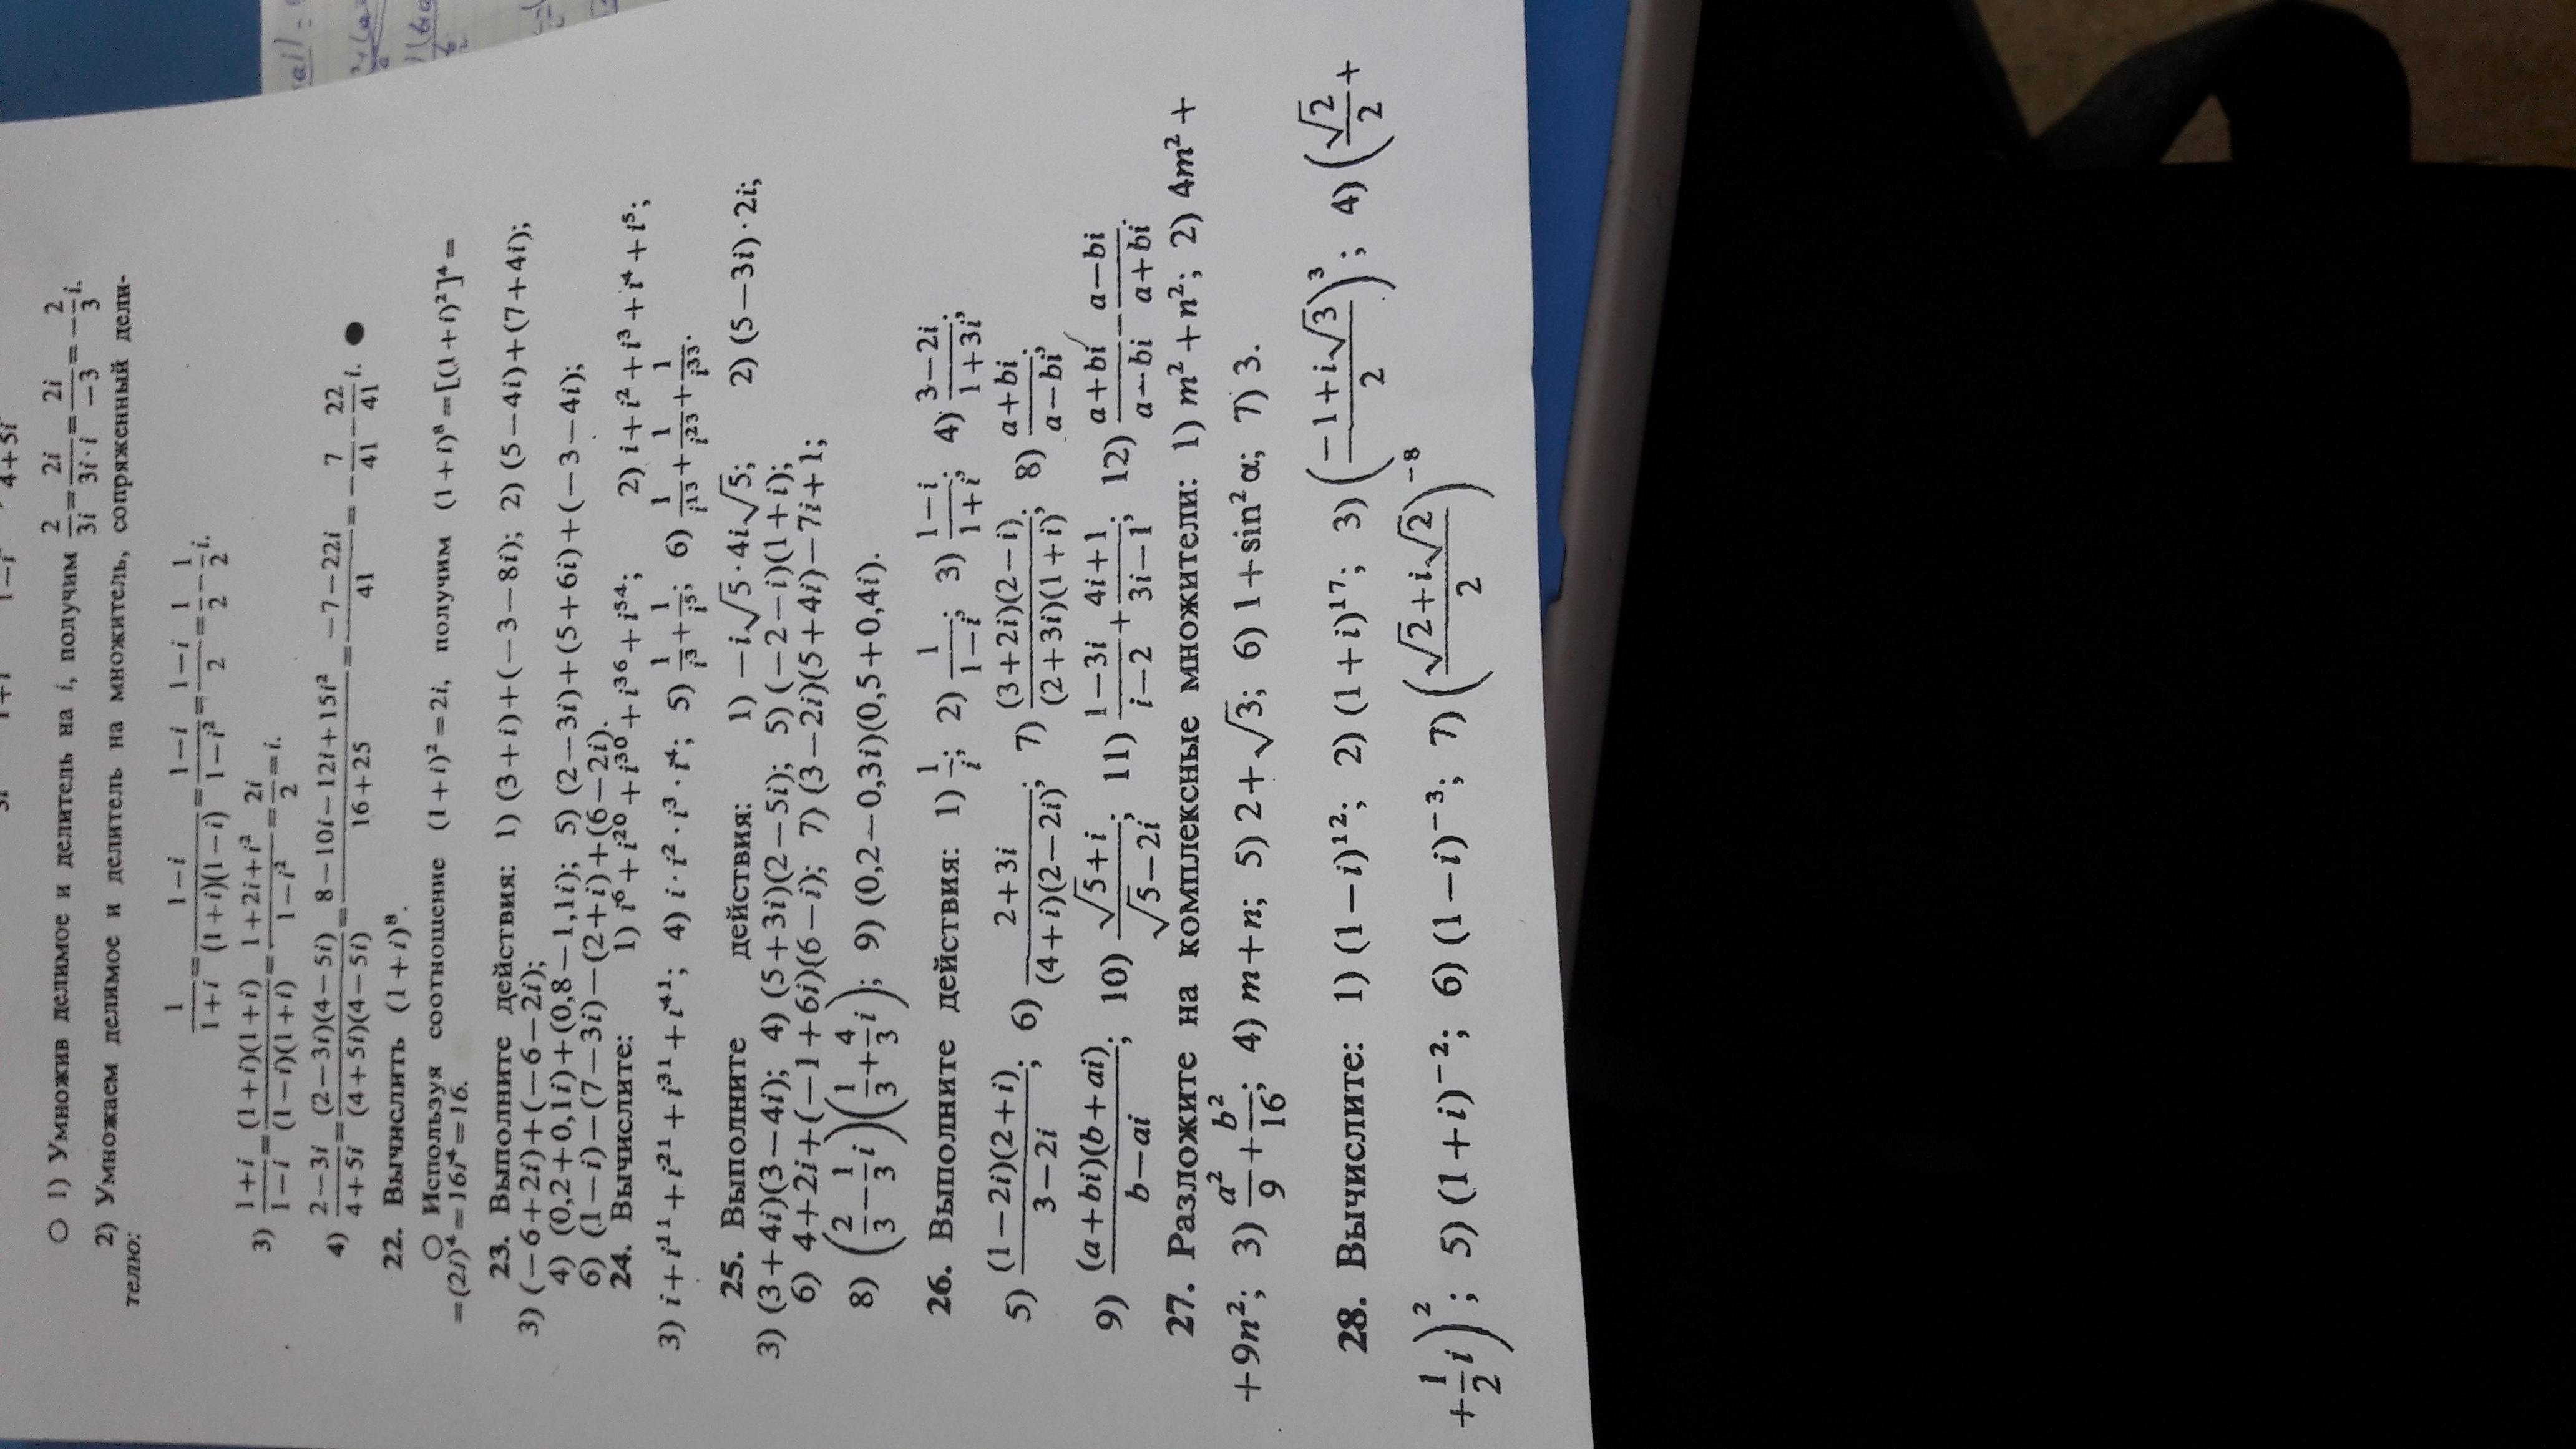 ○ 1) Умножив делимое и делитель на i, получим 2/3i = 2i/3i·i = 2i/−3 = −2/3 i.
2) Умножаем делимое и делитель на множитель, сопряженный дели-
телю:
1/1+i = 1−i/(1+i)(1−i) = 1−i/1−i² = 1−i/2 = 1/2 − 1/2 i.
3) 1+i/1−i = (1+i)(1+i)/(1−i)(1+i) = 1+2i+i²/1−i² = 2i/2 = i.
4) 2−3i/4+5i = (2−3i)(4−5i)/(4+5i)(4−5i) = 8−10i−12i+15i²/16+25 = −7−22i/41 = −7/41 − 22/41 i. ●
22. Вычислить (1+i)⁸.
○ Используя соотношение (1+i)²=2i, получим (1+i)⁸=[(1+i)²]⁴=
=(2i)⁴=16i⁴=16.
23. Выполните действия: 1) (3+i)+(−3−8i); 2) (5−4i)+(7+4i);
3) (−6+2i)+(−6−2i);
4) (0,2+0,1i)+(0,8−1,1i); 5) (2−3i)+(5+6i)+(−3−4i);
6) (1−i)−(7−3i)−(2+i)+(6−2i).
24. Вычислите: 1) i⁶+i²⁰+i³⁰+i³⁶+i⁵⁴; 2) i+i²+i³+i⁴+i⁵;
3) i+i¹¹+i²¹+i³¹+i⁴¹; 4) i·i²·i³·i⁴; 5) 1/i³+1/i⁵; 6) 1/i¹³+1/i²³+1/i³³.
25. Выполните действия: 1) −i√5·4i√5; 2) (5−3i)·2i;
3) (3+4i)(3−4i); 4) (5+3i)(2−5i); 5) (−2−i)(1+i);
6) 4+2i+(−1+6i)(6−i); 7) (3−2i)(5+4i)−7i+1;
8) (2/3−1/3 i)(1/3+4/3 i); 9) (0,2−0,3i)(0,5+0,4i).
26. Выполните действия: 1) 1/i; 2) 1/1−i; 3) 1−i/1+i; 4) 3−2i/1+3i;
5) (1−2i)(2+i)/3−2i; 6) 2+3i/(4+i)(2−2i); 7) (3+2i)(2−i)/(2+3i)(1+i); 8) a+bi/a−bi;
9) (a+bi)(b+ai)/b−ai; 10) √5+i/√5−2i; 11) 1−3i/i−2 + 4i+1/3i−1; 12) a+bi/a−bi − a−bi/a+bi.
27. Разложите на комплексные множители: 1) m²+n²; 2) 4m²+
+9n²; 3) a²/9+b²/16; 4) m+n; 5) 2+√3; 6) 1+sin²α; 7) 3.
28. Вычислите: 1) (1−i)¹²; 2) (1+i)¹⁷; 3) (−1+i√3/2)³; 4) (√2/2+
+1/2 i)²; 5) (1+i)⁻²; 6) (1−i)⁻³; 7) (√2+i√2/2)⁻⁸